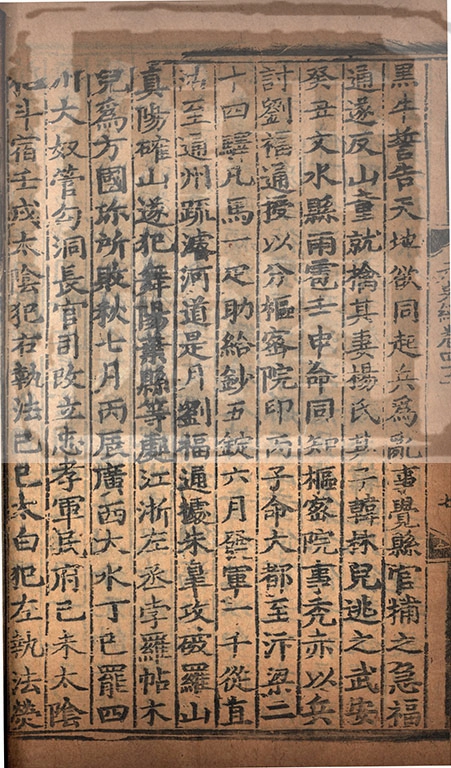 黑牛誓告天地欲同起兵爲亂事覺縣官捕之急福
通遂反山童就擒其妻楊氏其子韓林兒逃之武安
癸丑文水縣雨雹壬申命同知樞密院事禿赤以兵
討劉福通授以分樞密院印丙子命大都至汴梁二
十四驛凡馬一疋助給鈔五錠六月發軍一千從直
沽至通州疏濬河道是月劉福通據朱皐攻破羅山
真陽確山遂犯舞陽葉縣等處江浙左丞孛羅帖木
兒爲方國珎所敗秋七月丙辰廣西大水丁巳罷四
川大奴管勾洞長官司改立忠孝軍民府己未太陰
犯斗宿壬戌太陰犯右執法己巳太白犯左執法熒